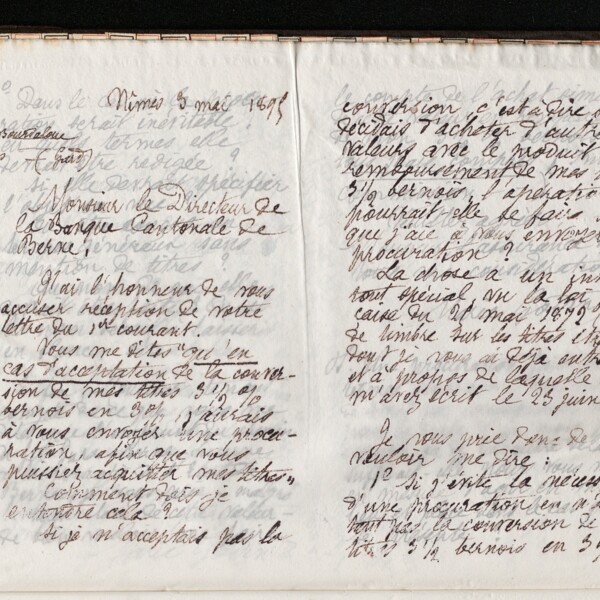 Nîmes 3 mai 1895
Bourdaloue
(Gard)
Monsieur le Directeur de
la Banque Cantonale de
Berne,
J'ai l'honneur de vous
accuser réception de votre
lettre du 1er courant.
Vous me dites "qu'en
cas d'acceptation de la conver-
sion de mes titres 3 1/2 %
bernois en 3 %, j'aurais
à vous envoyer une procu-
ration, afin que vous
puissiez acquitter mes titres"
Comment dois je
entendre cela ?
Si je n'acceptais pas la
conversion, c'est à dire
décidais d'acheter d'autre
valeurs avec le produit
remboursement de mes
3 1/2 bernois l'opération
pourrait elle se faire
que j'aie à vous envoyer
procuration ?
La chose a un
tout spécial, vu la loi
caise du 28 mai 1872
de timbre sur les titres
dont je vous ai déjà
et à propos de laquelle
m'avez écrit le 23 juin
Je vous prie donc de
vouloir me dire :
1° Si j'évite la
d'une procuration en
pas la conversion de
titres 3 1/2 bernois en 3